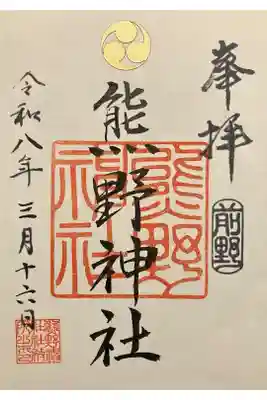 奉拝
前野
熊野神社
熊野神社
令和八年三月十六日